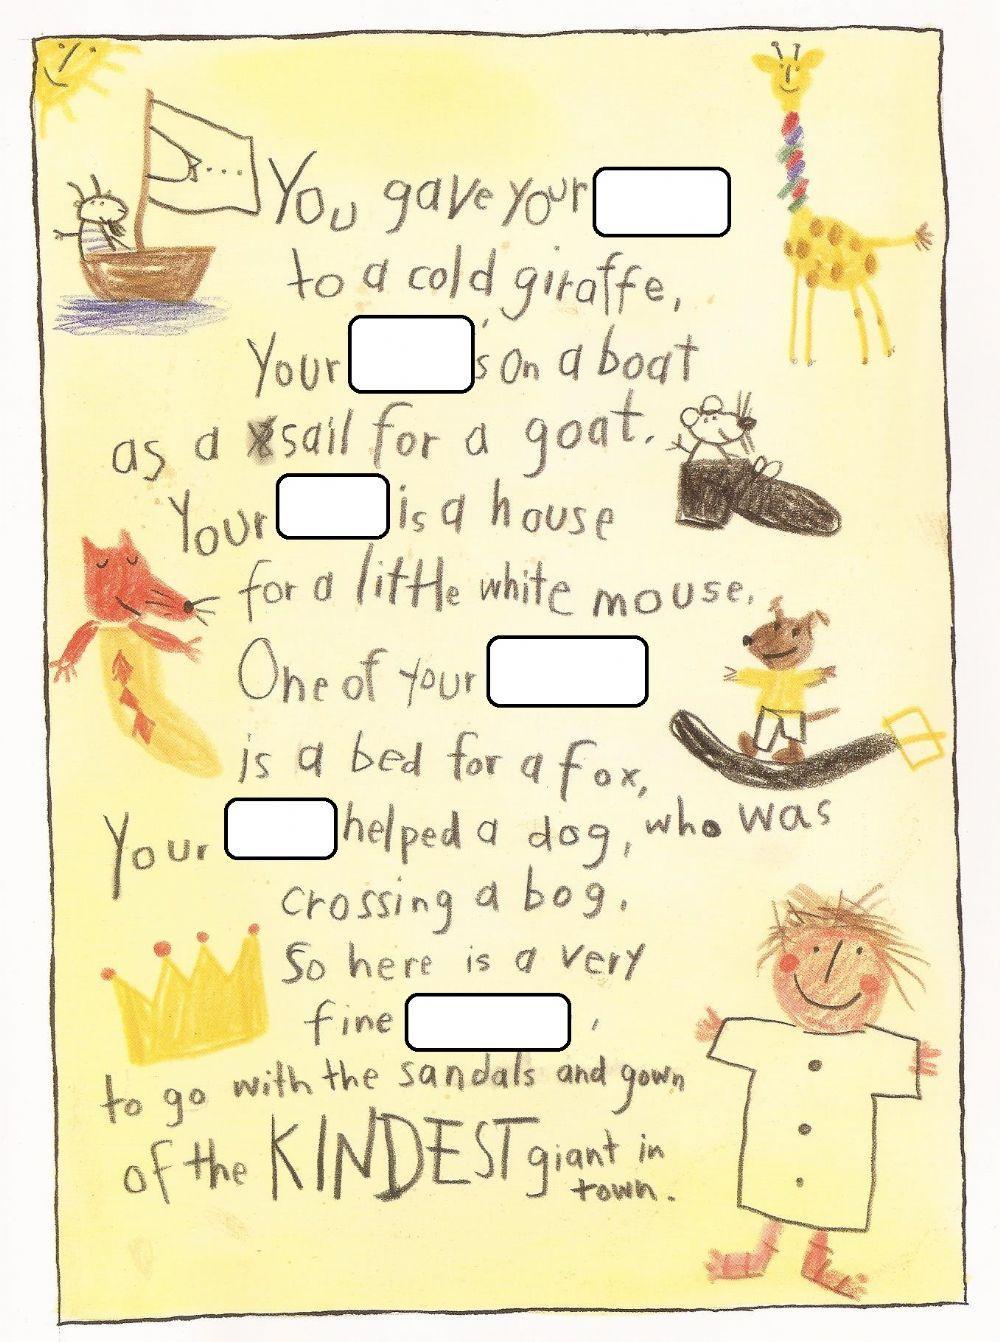 You gave your
to a cold giraffe,
Your 's on a boat
as a sail for a goat.
Your is a house
for a little white mouse.
One of your
is a bed for a fox,
Your helped a dog, who was
crossing a bog.
So here is a very
fine ,
to go with the sandals and gown
of the KINDEST giant in
town.